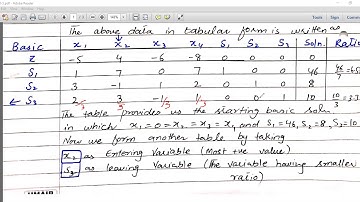 The above data in tabular form is written as
Basic x₁ x₂ x₃ x₄ S₁ S₂ S₃ Soln. Ratio
Z -5 4 -6 -8 0 0 0
S₁ 1 7 0 7 1 0 0 46 46/7 =6.5
S₂ 3 -1 2 0 1 0 8
← S₃ 2 3 -1 1 0 0 1 10 10/3 =3.3
The table provides us the starting basic soln.
in which x₁=0=x₂=x₃=x₄ and S₁=46, S₂=8, S₃=10
Now we form another table by taking
x₂ as Entering Variable (Most +ve value)
S₃ as leaving Variable (the variable having smaller
ratio)